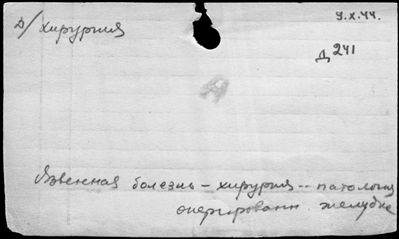 Д/ хирургия
9.X.44.
Д 241
А
Язвенная болезнь – хирургия -- патология
оперированн. желудка